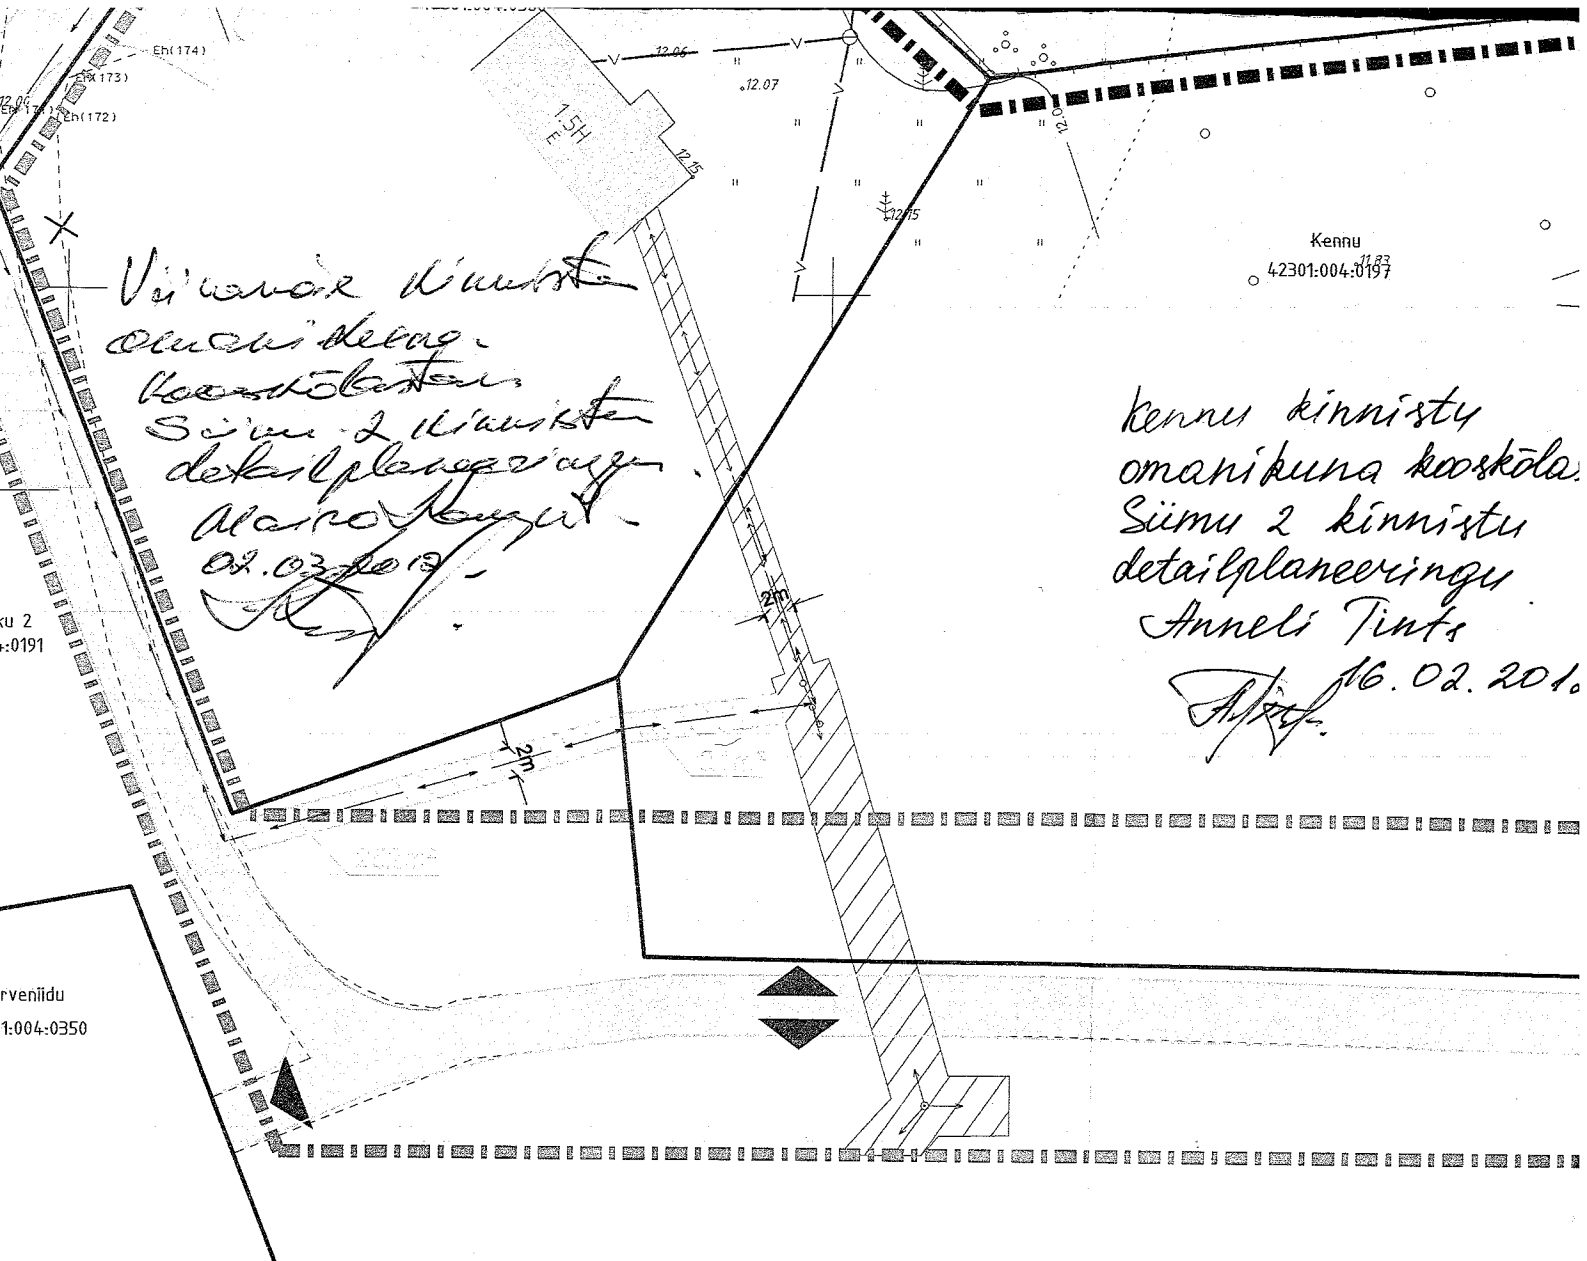 Eh(174)
Eh(173)
Eh(172)
12.06
12.07
1.5H
E
12.15
12.15
12.0
Kennu
11.83
42301:004:0197
kinnistu
kooskõlastan
Siimu 2 kinnistu
detailplaneeringu.
02.03.
Kennu kinnistu
omanikuna kooskõlas
Siimu 2 kinnistu
detailplaneeringu
Anneli Tints
16.02.201
2m
2m
ku 2
4:0191
rveniidu
1:004:0350